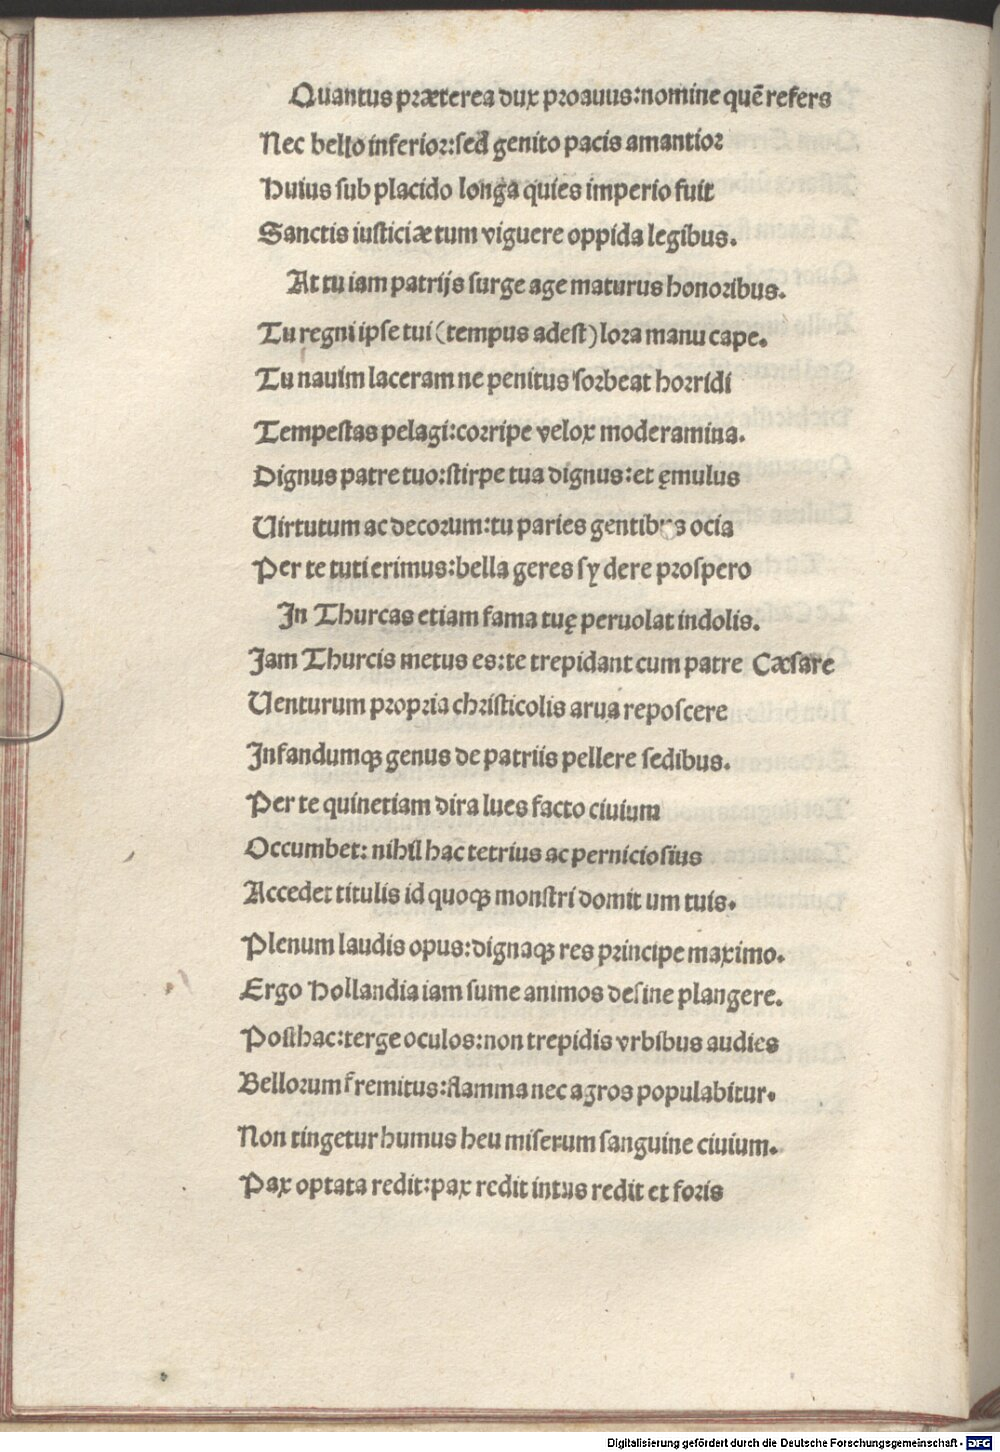 Quantus præterea dux proauus:nomine quē refers
Nec bello inferior:sed genito pacis amantior
Huius sub placido longa quies imperio fuit
Sanctis iusticiæ tum viguere oppida legibus.
At tu iam patrijs surge age maturus honoribus.
Tu regni ipse tui (tempus adest) lora manu cape.
Tu nauim laceram ne penitus sorbeat horridi
Tempestas pelagi:corripe velox moderamina.
Dignus patre tuo:stirpe tua dignus:et ęmulus
Uirtutum ac decorum:tu paries gentibus ocia
Per te tuti erimus:bella geres sydere prospero
In Thurcas etiam fama tuę peruolat indolis.
Jam Thurcis metus es:te trepidant cum patre Cæsare
Uenturum propria christicolis arua reposcere
Infandumqꝫ genus de patriis pellere sedibus.
Per te quinetiam dira lues facto ciuium
Occumbet: nihil hac tetrius ac perniciosius
Accedet titulis id quoqꝫ monstri domit um tuis.
Plenum laudis opus:dignaqꝫ res principe maximo.
Ergo Hollandia iam sume animos desine plangere.
Posthac:terge oculos:non trepidis vrbibus audies
Bellorum fremitus:flamma nec agros populabitur.
Non tingetur humus heu miserum sanguine ciuium.
Pax optata redit:pax redit intus redit et foris
Digitalisierung gefördert durch die Deutsche Forschungsgemeinschaft - DFG